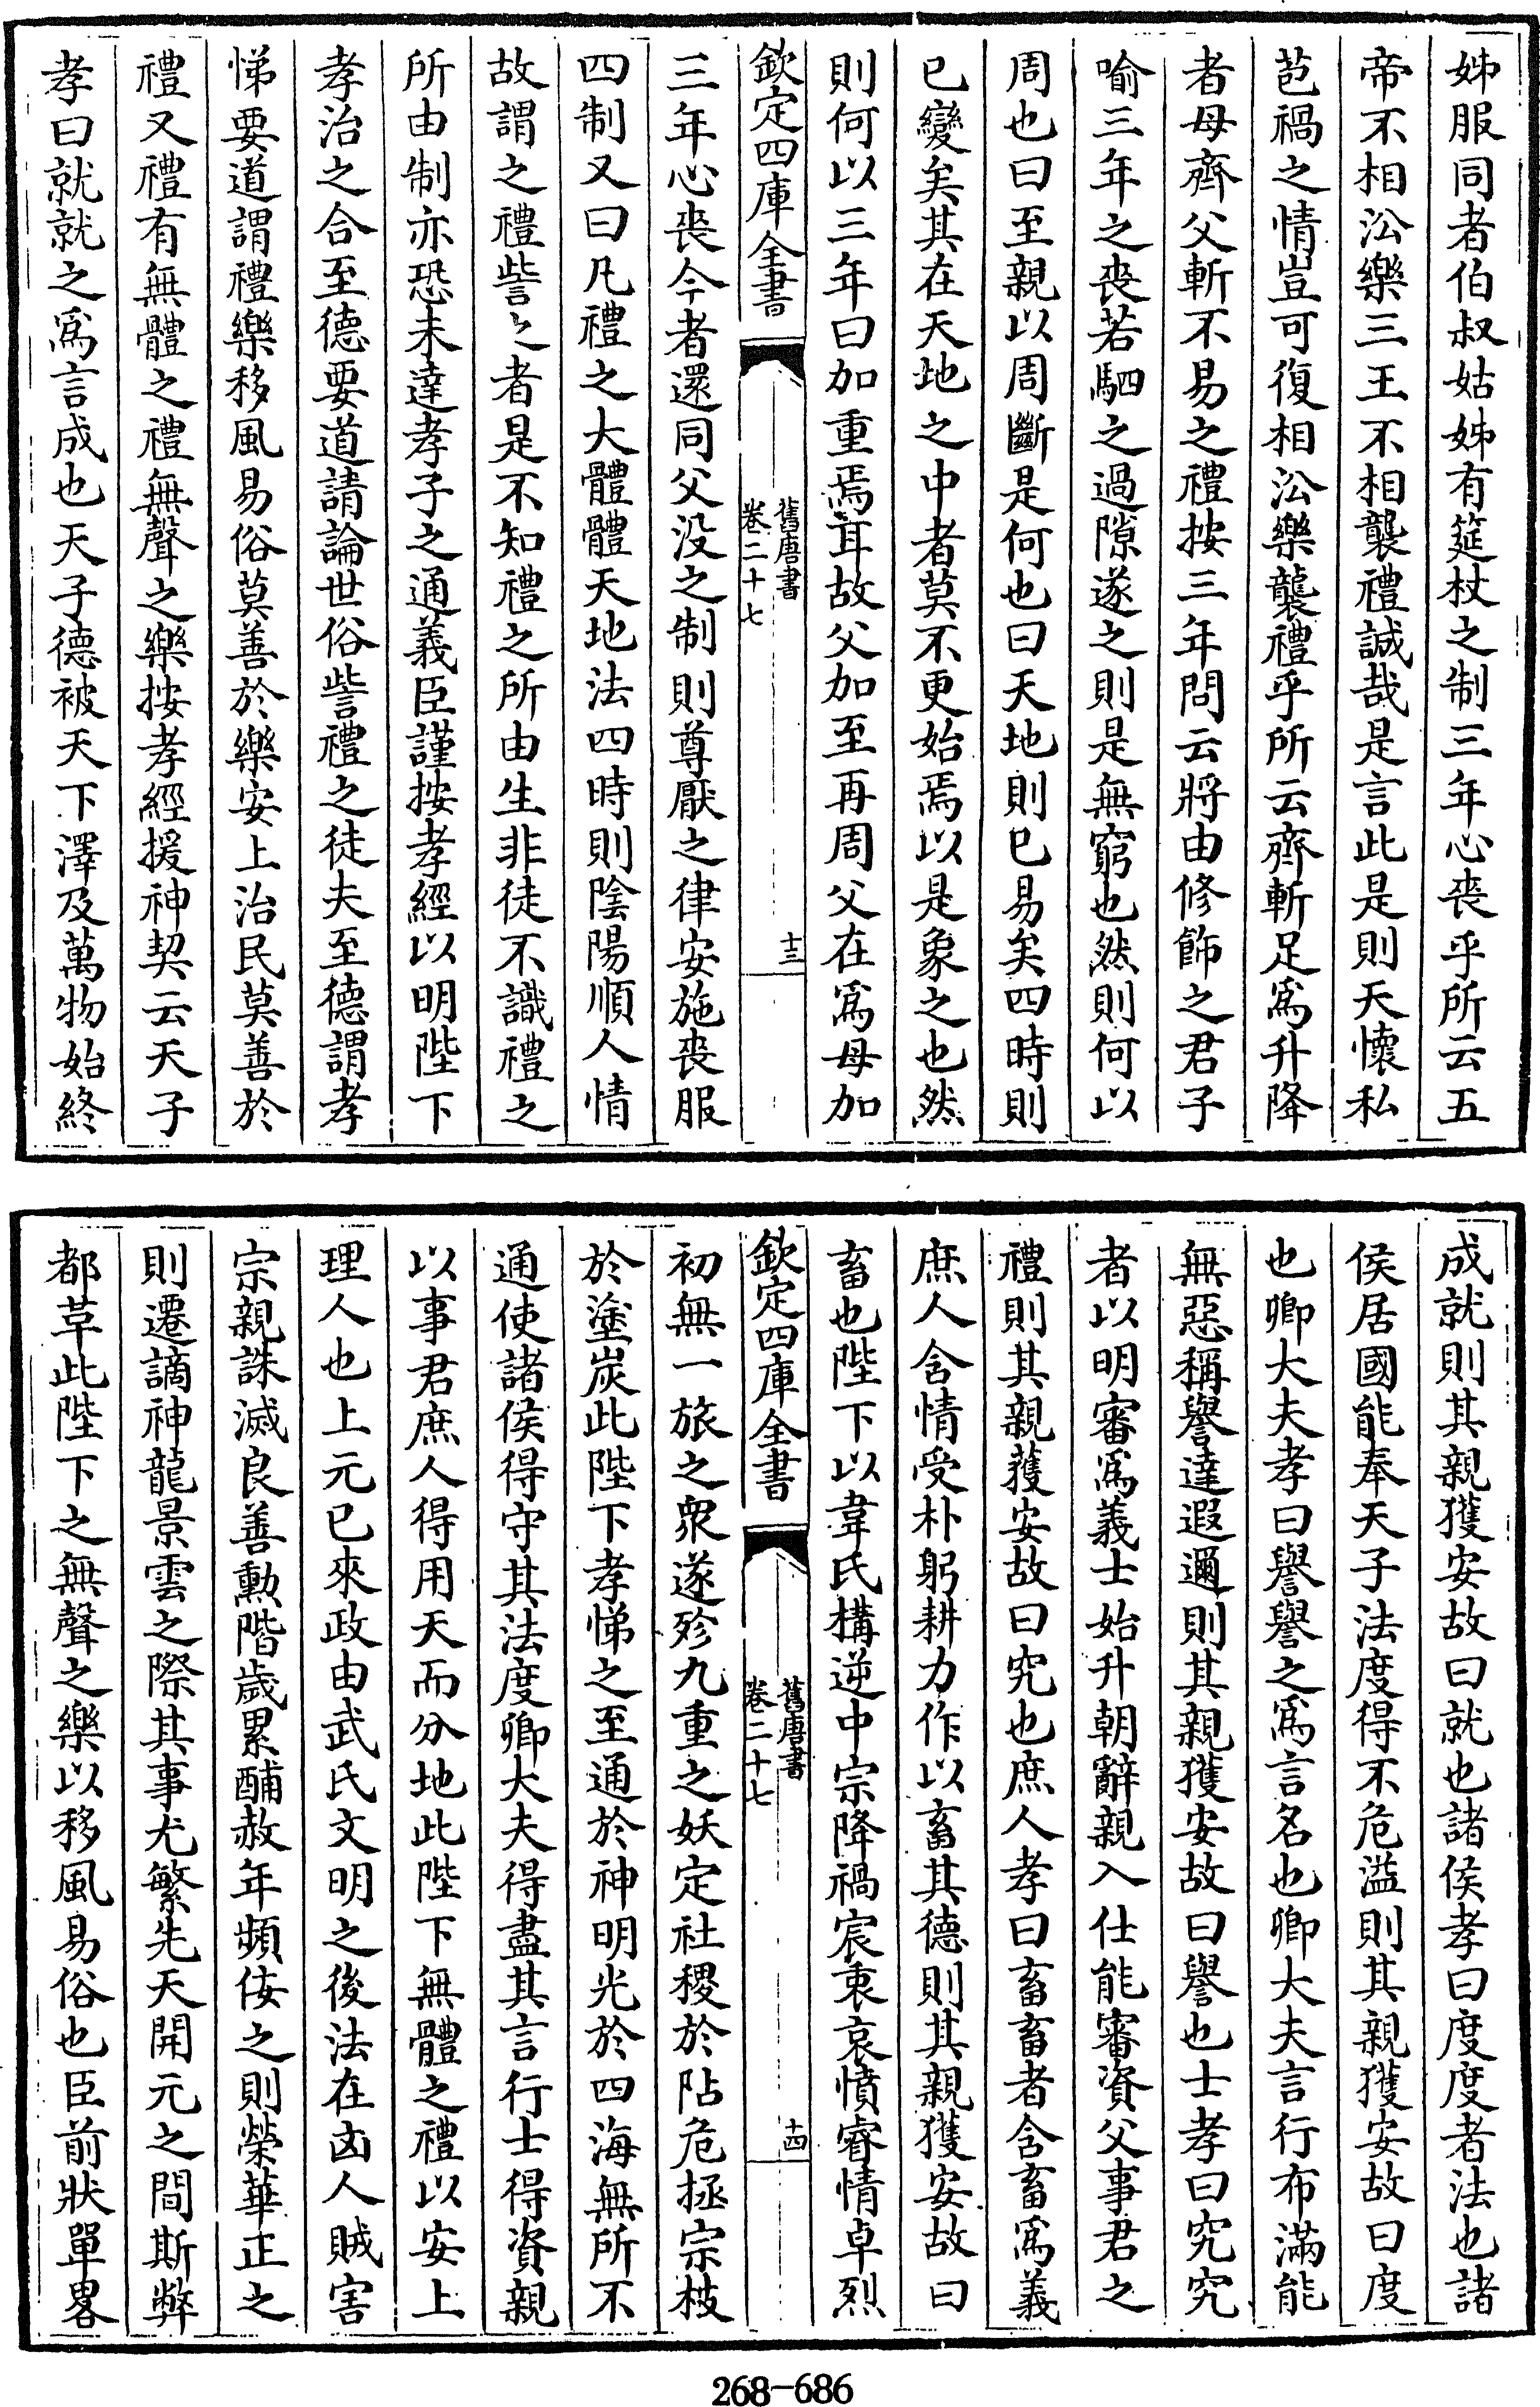 姊服同者伯叔姑姊有筵杖之制三年心喪乎所云五
帝不相㳂樂三王不相襲禮誠哉是言此是則天懷私
苞禍之情豈可復相㳂樂襲禮乎所云齊斬足爲升降
者母齊父斬不易之禮按三年問云將由修飾之君子
喻三年之喪若駟之過隙遂之則是無窮也然則何以
周也曰至親以周斷是何也曰天地則已易矣四時則
已變矣其在天地之中者莫不更始焉以是象之也然
則何以三年曰加重焉耳故父加至再周父在爲母加
欽定四庫全書
舊唐書
卷二十七
十三
三年心喪今者還同父没之制則尊厭之律安施喪服
四制又曰凡禮之大體體天地法四時則陰陽順人情
故謂之禮訾之者是不知禮之所由生非徒不識禮之
所由制亦恐未達孝子之通義臣謹按孝經以明陛下
孝治之合至德要道請論世俗訾禮之徒夫至德謂孝
悌要道謂禮樂移風易俗莫善於樂安上治民莫善於
禮又禮有無體之禮無聲之樂按孝經援神契云天子
孝曰就就之爲言成也天子德被天下澤及萬物始終
成就則其親獲安故曰就也諸侯孝曰度度者法也諸
侯居國能奉天子法度得不危溢則其親獲安故曰度
也卿大夫孝曰譽譽之爲言名也卿大夫言行布滿能
無惡稱譽達遐邇則其親獲安故曰譽也士孝曰究究
者以明審爲義士始升朝辭親入仕能審資父事君之
禮則其親獲安故曰究也庶人孝曰畜畜者含畜爲義
庶人含情受朴躬耕力作以畜其德則其親獲安故曰
畜也陛下以韋氏構逆中宗降禍宸衷哀憤睿情卓烈
欽定四庫全書
舊唐書
卷二十七
十四
初無一旅之衆遂殄九重之妖定社稷於阽危拯宗枝
於塗炭此陛下孝悌之至通於神明光於四海無所不
通使諸侯得守其法度卿大夫得盡其言行士得資親
以事君庶人得用天而分地此陛下無體之禮以安上
理人也上元已來政由武氏文明之後法在凶人賊害
宗親誅滅良善勲階歲累酺赦年頻佞之則榮華正之
則遷謫神龍景雲之際其事尤繁先天開元之間斯弊
都革此陛下之無聲之樂以移風易俗也臣前狀單畧
268-686